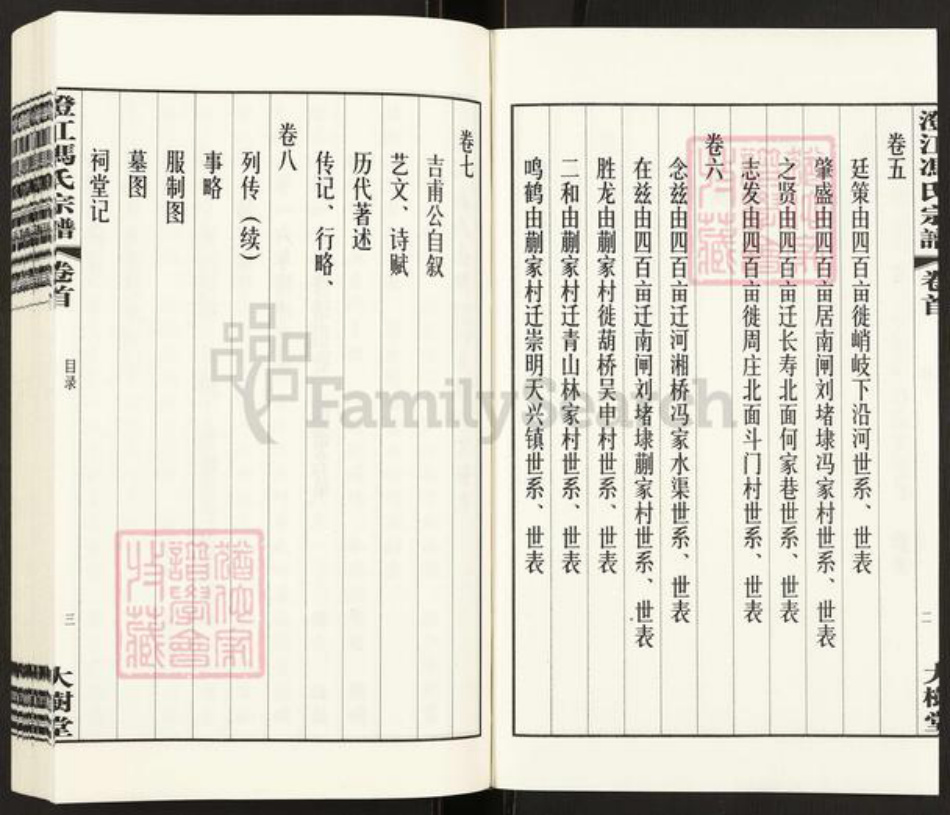 澄江馮氏宗譜 卷首
二
大樹堂
卷五
廷策由四百亩徙峭岐下沿河世系、世表
肇盛由四百亩居南闸刘堵埭冯家村世系、世表
之贤由四百亩迁长寿北面何家巷世系、世表
志发由四百亩徙周庄北面斗门村世系、世表
卷六
念兹由四百亩迁河湘桥冯家水渠世系、世表
在兹由四百亩迁南闸刘堵埭蒯家村世系、世表
胜龙由蒯家村徙葫桥吴申村世系、世表
二和由蒯家村迁青山林家村世系、世表
鸣鹤由蒯家村迁崇明天兴镇世系、世表
卷七
吉甫公自叙
艺文、诗赋
历代著述
传记、行略、
卷八
列传（续）
事略
服制图
墓图
祠堂记
澄江馮氏宗譜 卷首
目录
三
大樹堂
FamilySearch